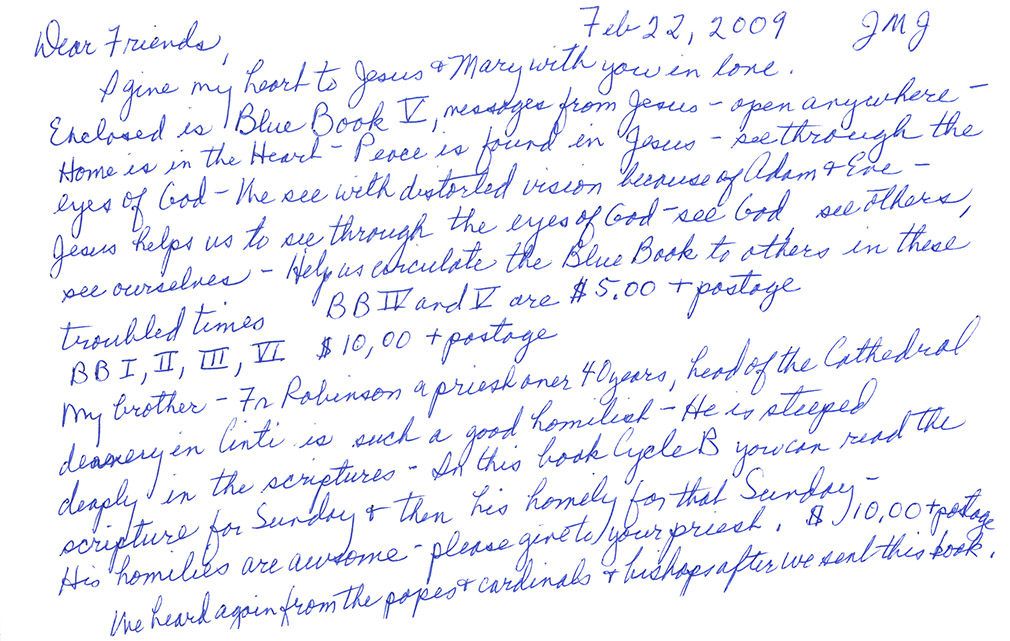 Feb 22, 2009 JMJ
Dear Friends,
I give my heart to Jesus & Mary with you in love.
Enclosed is Blue Book V, messages from Jesus - open anywhere -
Home is in the Heart - Peace is found in Jesus - see through the
eyes of God - We see with distorted vision because of Adam & Eve -
Jesus helps us to see through the eyes of God - see God, see others,
see ourselves - Help us circulate the Blue Book to others in these
troubled times BB IV and V are $5.00 + postage
BB I, II, III, VI $10,00 + postage
My brother - Fr Robinson a priest over 40 years, head of the Cathedral
deanery in Cinti is such a good homilist - He is steeped
deeply in the scriptures - In this book Cycle B you can read the
scripture for Sunday & then his homely for that Sunday -
His homilies are awsome - please give to your priest. $10,00 + postage
We heard again from the popes & cardinals & bishops after we sent this book.